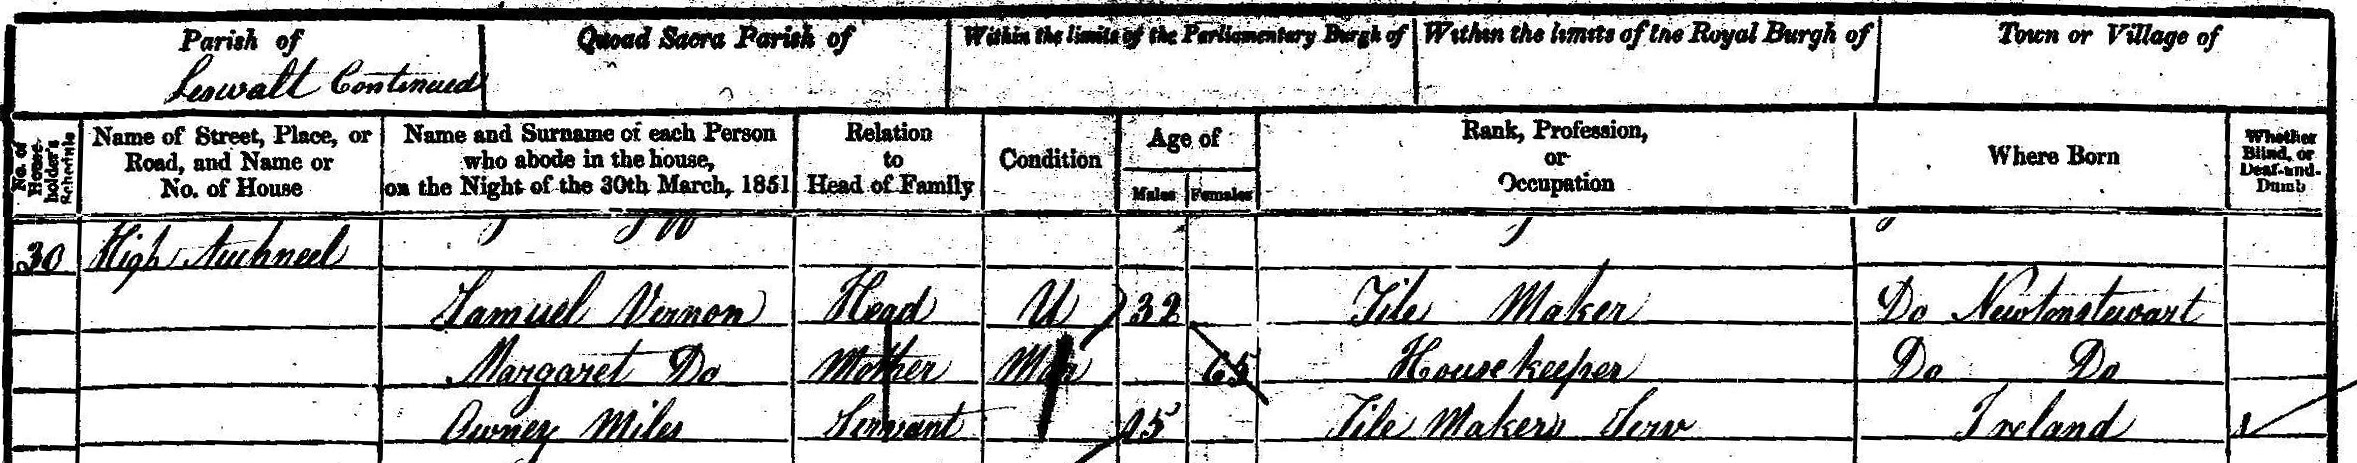 Parish of Quoad Sacra Parish of Within the limits of the Parliamentary Burgh of Within the limits of the Royal Burgh of Town or Village of
Leswalt Continued
No. of House-holder's Schedule Name of Street, Place, or Road, and Name or No. of House Name and Surname of each Person who abode in the house, on the Night of the 30th March, 1851 Relation to Head of Family Condition Age of Males Females Rank, Profession, or Occupation Where Born Whether Blind, or Deaf-and-Dumb
30 High Auchneel
Samuel Vernon Head U 32 Tile Maker Do Newtonstewart
Margaret Do Mother Mar 65 Housekeeper Do Do
Owney Miles Servant 15 Tile Makers Serv Ireland